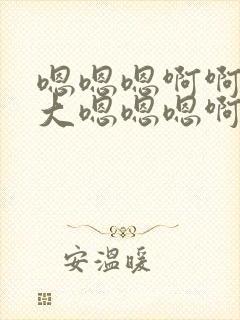 嗯嗯嗯啊啊
大嗯嗯嗯啊
安温暖